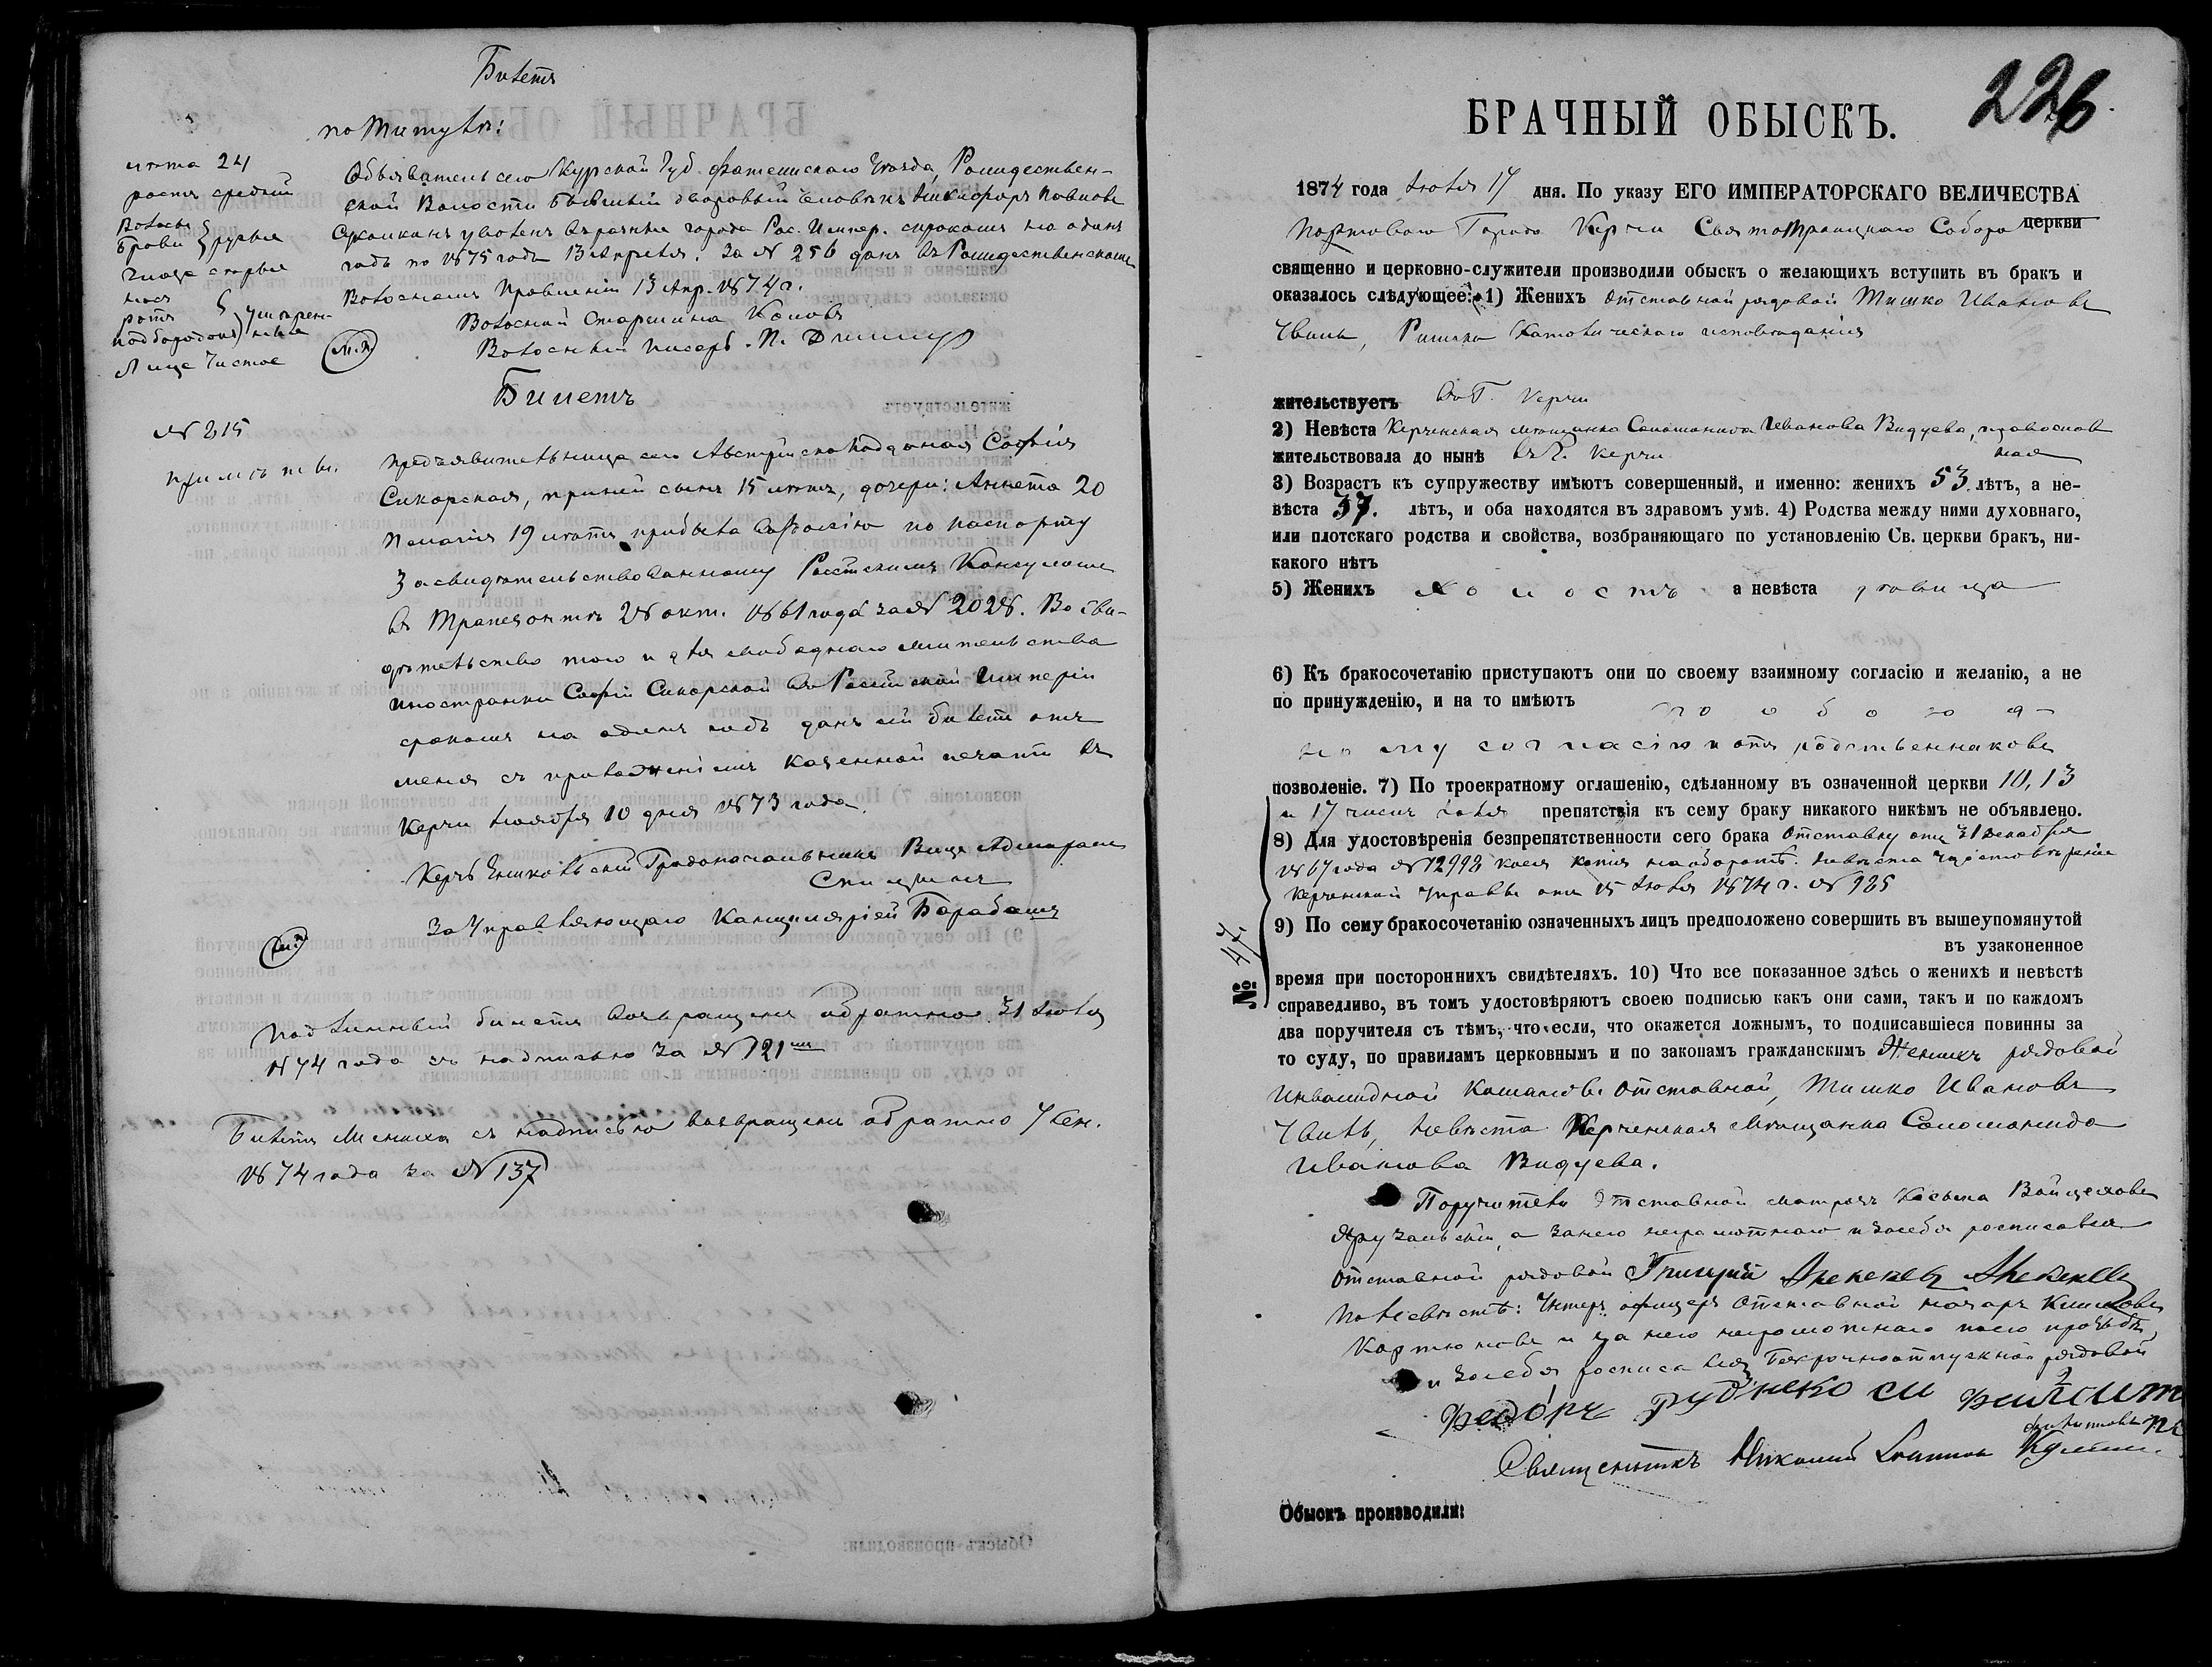 Билетъ
по титулѣ:
лѣта 24
ростъ средній
Волосы
брови } русые
глаза сѣрые
носъ
ротъ
подбородокъ } умѣренные
Лице чистое
Объявитель сего Курской Губ. Фатежскаго Уѣзда, Рождествен-
ской Волости бывшій дворовый человѣкъ Никифоръ Павловъ
уволенъ въ разные города Рос. Импер. срокомъ на одинъ
годъ по 1875 годъ 13 Апрѣля. За № 256 данъ въ Рождественскомъ
Волостномъ Правленіи 13 Апр. 1874 г.
Волосной Старшина
(М.П.) Волосный писарь. П.
Билетъ
№ 815
Предъявительница сего Австрійскоподданая Софія
Сикорская, при ней сынъ 15 лѣтъ, дочери: Аннета 20
Пелагія 19 лѣтъ прибыла въ Россію по паспорту
Засвидѣтельствованному Россійскимъ Консуломъ
въ Трапезонтѣ 28 окт. 1861 года за № 2028. Во сви-
дѣтельство того и для свободнаго жительства
иностранки Софіи Сикорской въ Россійской Имперіи
срокомъ на одинъ годъ данъ сей билетъ отъ
меня съ приложеніемъ казенной печати въ
Керчи Ноября 10 дня 1873 года.
Керчь Еникольскій Градоначальникъ Вице Адмиралъ
Спицынъ
За Управляющаго Канцеляріей Барабашъ
(М.П.)
Подлинный билетъ возвращенъ обратно 31 Іюля
1874 года съ надписью за № 121мъ
Билетъ Жениха съ надписью возвращенъ обратно 7 Сен.
1874 года за № 137
226.
БРАЧНЫЙ ОБЫСКЪ.
1874 года Іюля 17 дня. По указу ЕГО ИМПЕРАТОРСКАГО ВЕЛИЧЕСТВА
Портоваго Города Керчи Свято Троицкаго Собора церкви
священно и церковно-служители производили обыскъ о желающихъ вступить въ бракъ и
оказалось слѣдующее: 1) Женихъ отставной рядовой Тишко Ивановъ
Чвиль, Римско Католическаго исповѣданія
жительствуетъ въ Г. Керчи
2) Невѣста Керченская мѣщанка Соломонида Иванова Видуева, православ
ная
жительствовала до нынѣ въ Г. Керчи
3) Возрастъ къ супружеству имѣютъ совершенный, и именно: женихъ 53 лѣтъ, а не-
вѣста 37. лѣтъ, и оба находятся въ здравомъ умѣ. 4) Родства между ними духовнаго,
или плотскаго родства и свойства, возбраняющаго по установленію Св. церкви бракъ, ни-
какого нѣтъ
5) Женихъ холостъ а невѣста дѣвица
6) Къ бракосочетанію приступаютъ они по своему взаимному согласію и желанію, а не
по принужденію, и на то имѣютъ по обоюд-
ному согласію и отъ родственниковъ
позволеніе. 7) По троекратному оглашенію, сдѣланному въ означенной церкви 10, 13
и 17 числъ Іюля препятствія къ сему браку никакого никѣмъ не объявлено.
8) Для удостовѣренія безпрепятственности сего брака отставку отъ 31 декабря
1867 года № 12992 коея копія на оборотѣ. Невѣста удостовѣреніе
Керченской Управы отъ 15 Іюля 1874 г. № 925
№ 47.
9) По сему бракосочетанію означенныхъ лицъ предположено совершить въ вышеупомянутой
въ узаконенное
время при постороннихъ свидѣтеляхъ. 10) Что все показанное здѣсь о женихѣ и невѣстѣ
справедливо, въ томъ удостовѣряютъ своею подписью какъ они сами, такъ и по каждомъ
два поручителя съ тѣмъ, что если, что окажется ложнымъ, то подписавшіеся повинны за
то суду, по правиламъ церковнымъ и по законамъ гражданскимъ Женихъ рядовой
Инвалидной Команды отставной, Тишко Ивановъ
Чвиль, Невѣста Керченская мѣщанка Соломонида
Иванова Видуева.
Поручители Отставной матросъ Косьма Войцеховъ
а за него неграмотнаго и за себя росписался
отставной рядовой Григорій
По невѣстѣ: Унтеръ офицеръ Отставной
и за него неграмотнаго по его прозьбѣ
и за себя росписался Безсрочноотпускной рядовой
Федоръ
Священникъ Николай
Обыскъ производили: